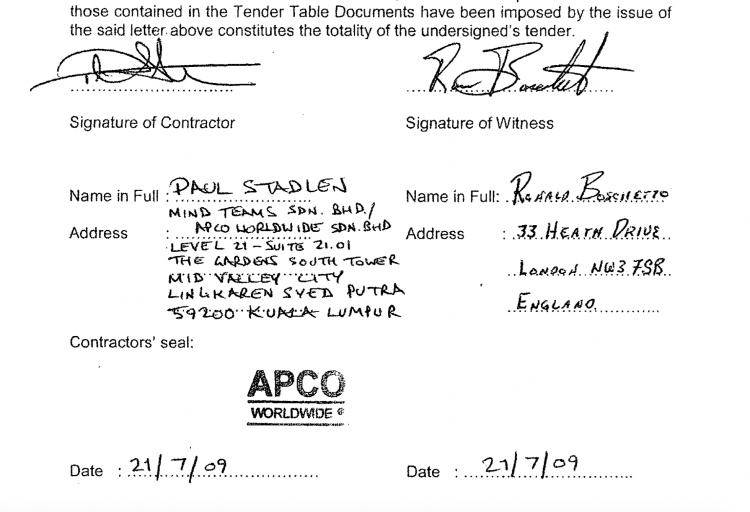 those contained in the Tender Table Documents have been imposed by the issue of
the said letter above constitutes the totality of the undersigned's tender.
Signature of Contractor
Signature of Witness
Name in Full : PAUL STADLEN
Name in Full: RONALD BOSCHETTO
MIND TEAMS SDN. BHD./
Address : APCO WORLDWIDE SDN. BHD
Address : 33 HEATH DRIVE
LEVEL 21 - SUITE 21.01
THE GARDENS SOUTH TOWER
LONDON NW3 7SB
MID VALLEY CITY
LINGKAREN SYED PUTRA
ENGLAND
59200 KUALA LUMPUR
Contractors' seal:
APCO
WORLDWIDE ®
Date : 21/7/09
Date : 21/7/09